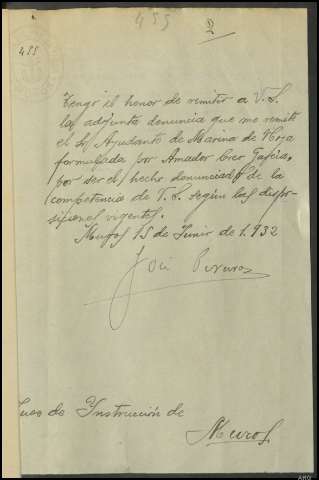 455
2
455
Tengo el honor de remitir a V.S.
la adjunta denuncia que me remite
el Sr Ayudante de Marina de Noya
formulada por Amador
por ser el hecho denunciado de la
competencia de V.S. según las dispo-
siciones vigentes.
Muros 15 de Junio de 1.932
José
Juez de Instrucción de
Muros